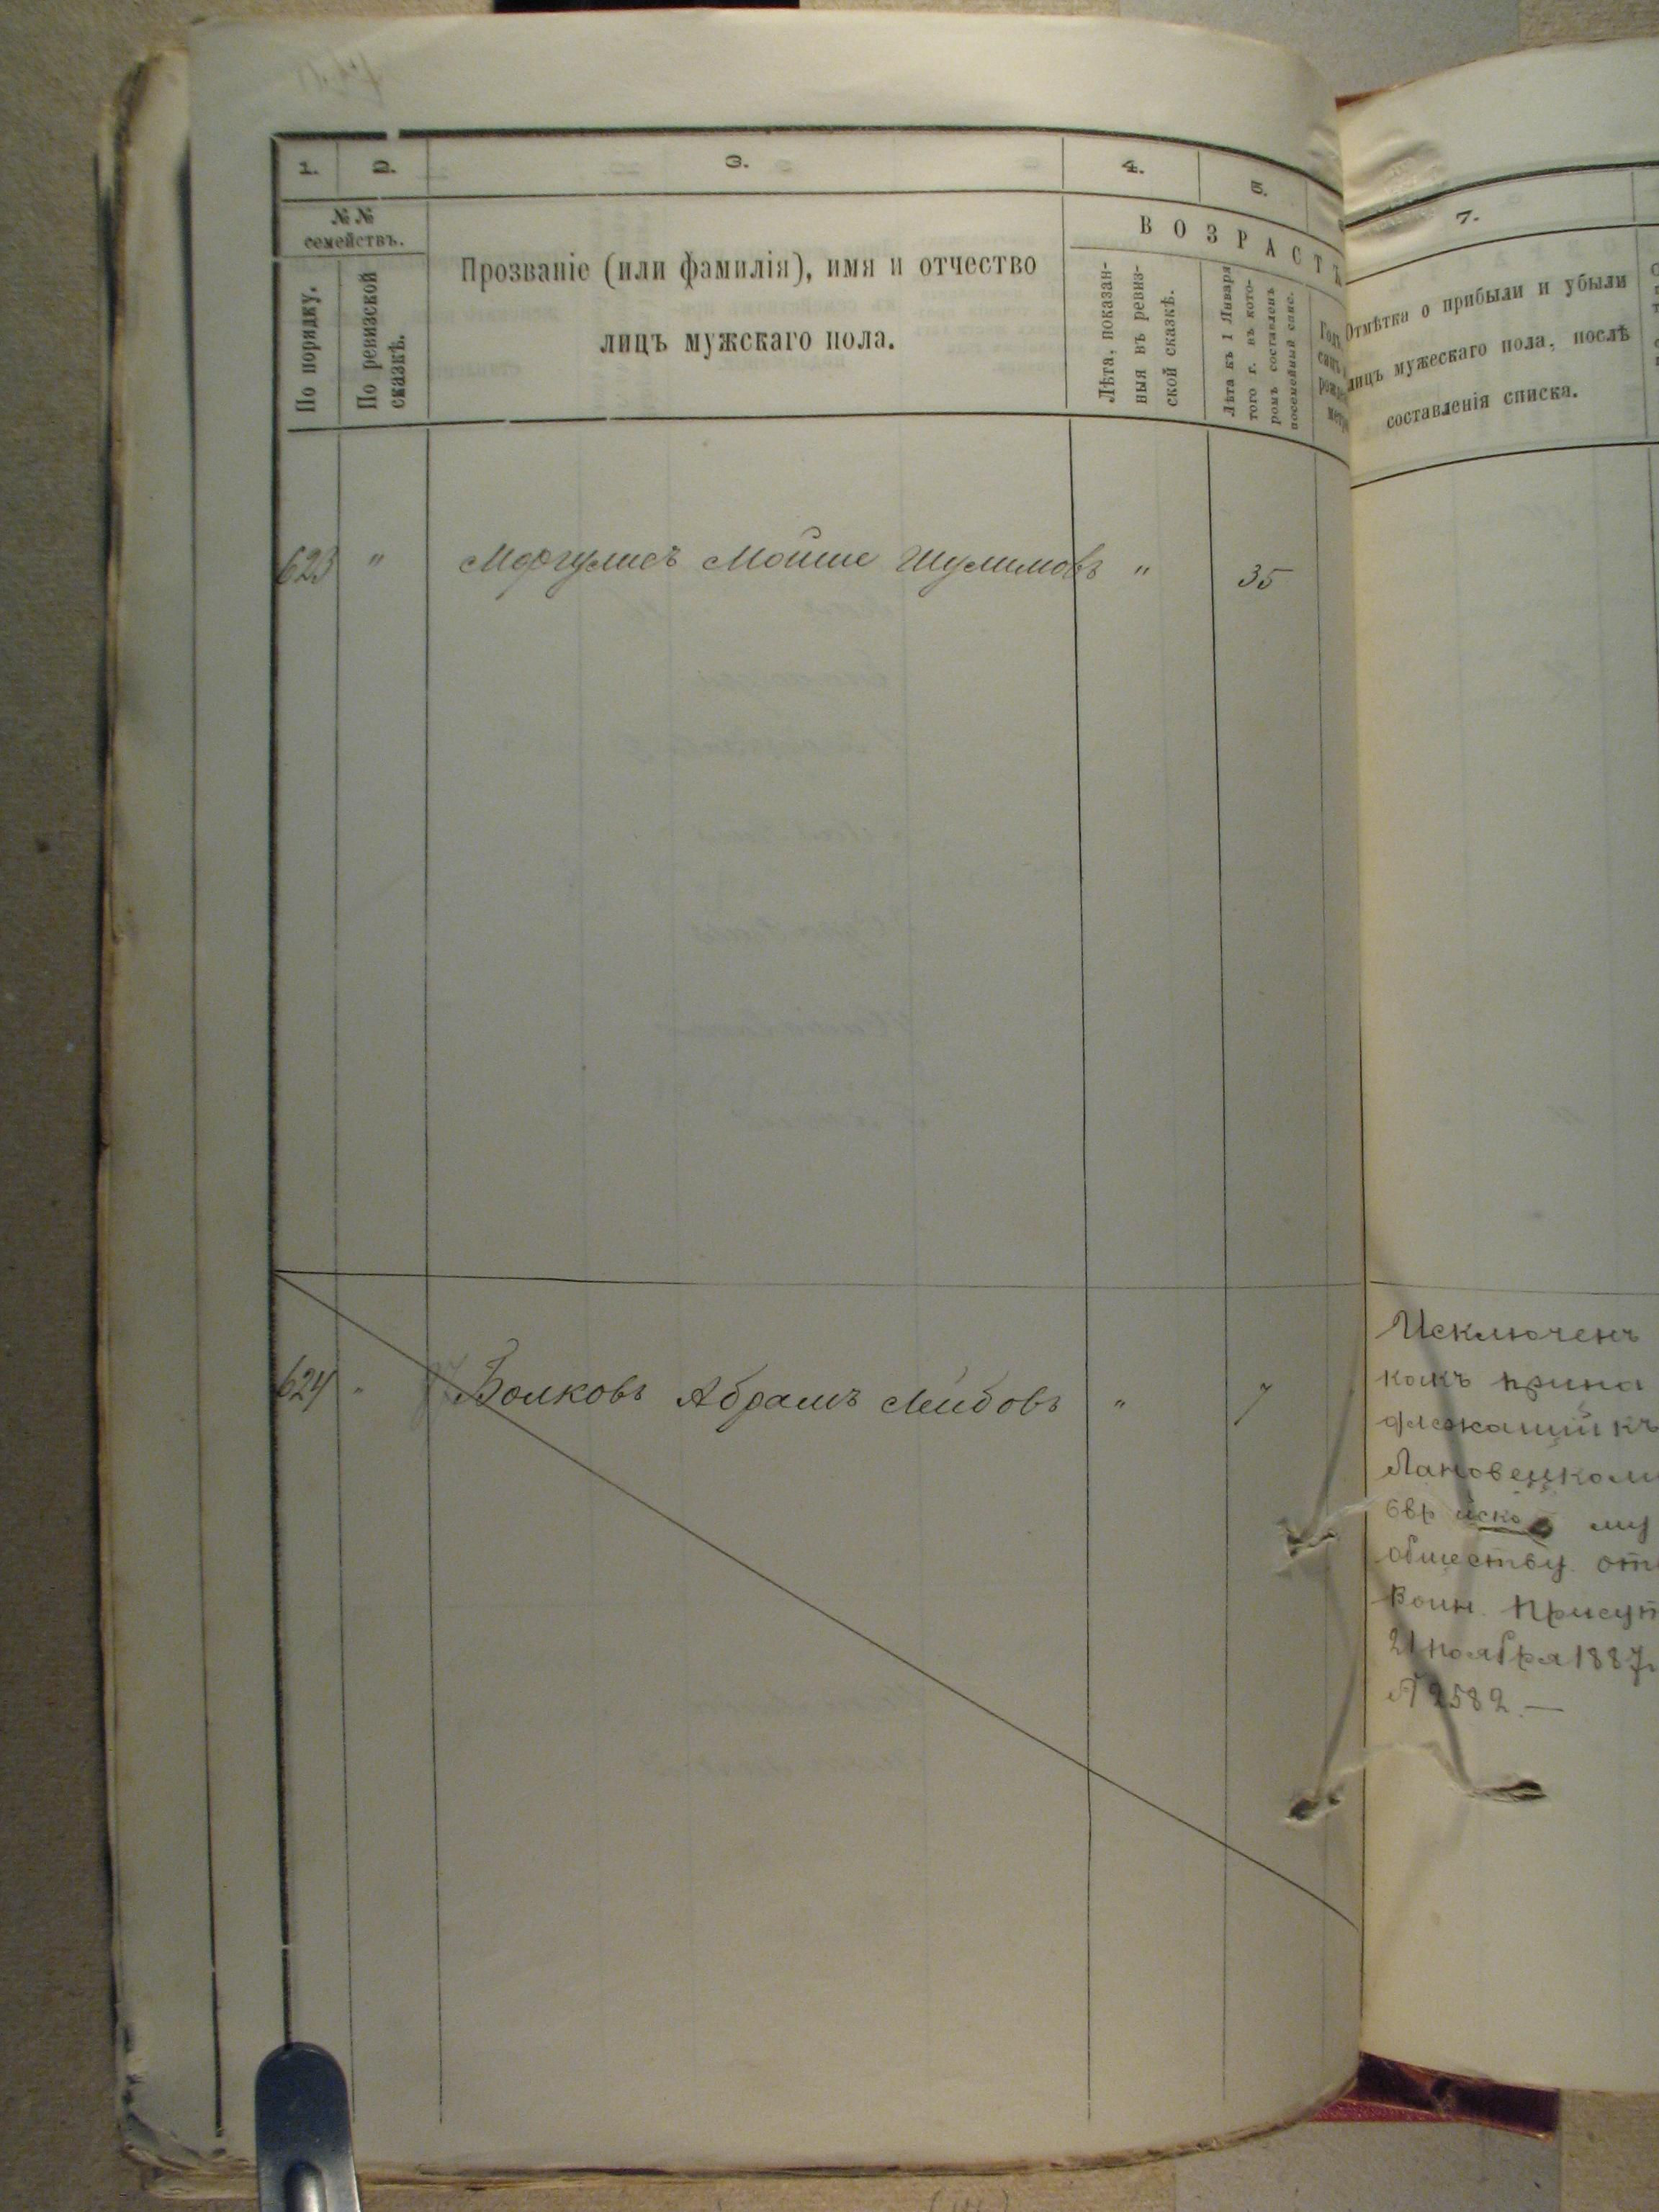 1. 2. 3. 4. 5.
№ № семействъ.
По порядку.
По ревизской сказкѣ.
Прозваніе (или фамилія), имя и отчество
лицъ мужскаго пола.
ВОЗРАСТЪ
Лѣта, показан-
ныя въ ревиз-
ской сказкѣ.
Лѣта къ 1 Января
того г. въ кото-
ромъ составленъ
посемейный спис.
623 " Моргулисъ Мойше Шулимовъ " 35
624 " Волковъ Абрамъ Лейбовъ " 7
7.
Отмѣтка о прибыли и убыли
лицъ мужескаго пола, послѣ
составленія списка.
Исключенъ
какъ прина
длежащій къ
Лановецкому
Евр ейско му
обществу. отн
Воин. Присут
21 ноября 1887 г
№ 2582. —